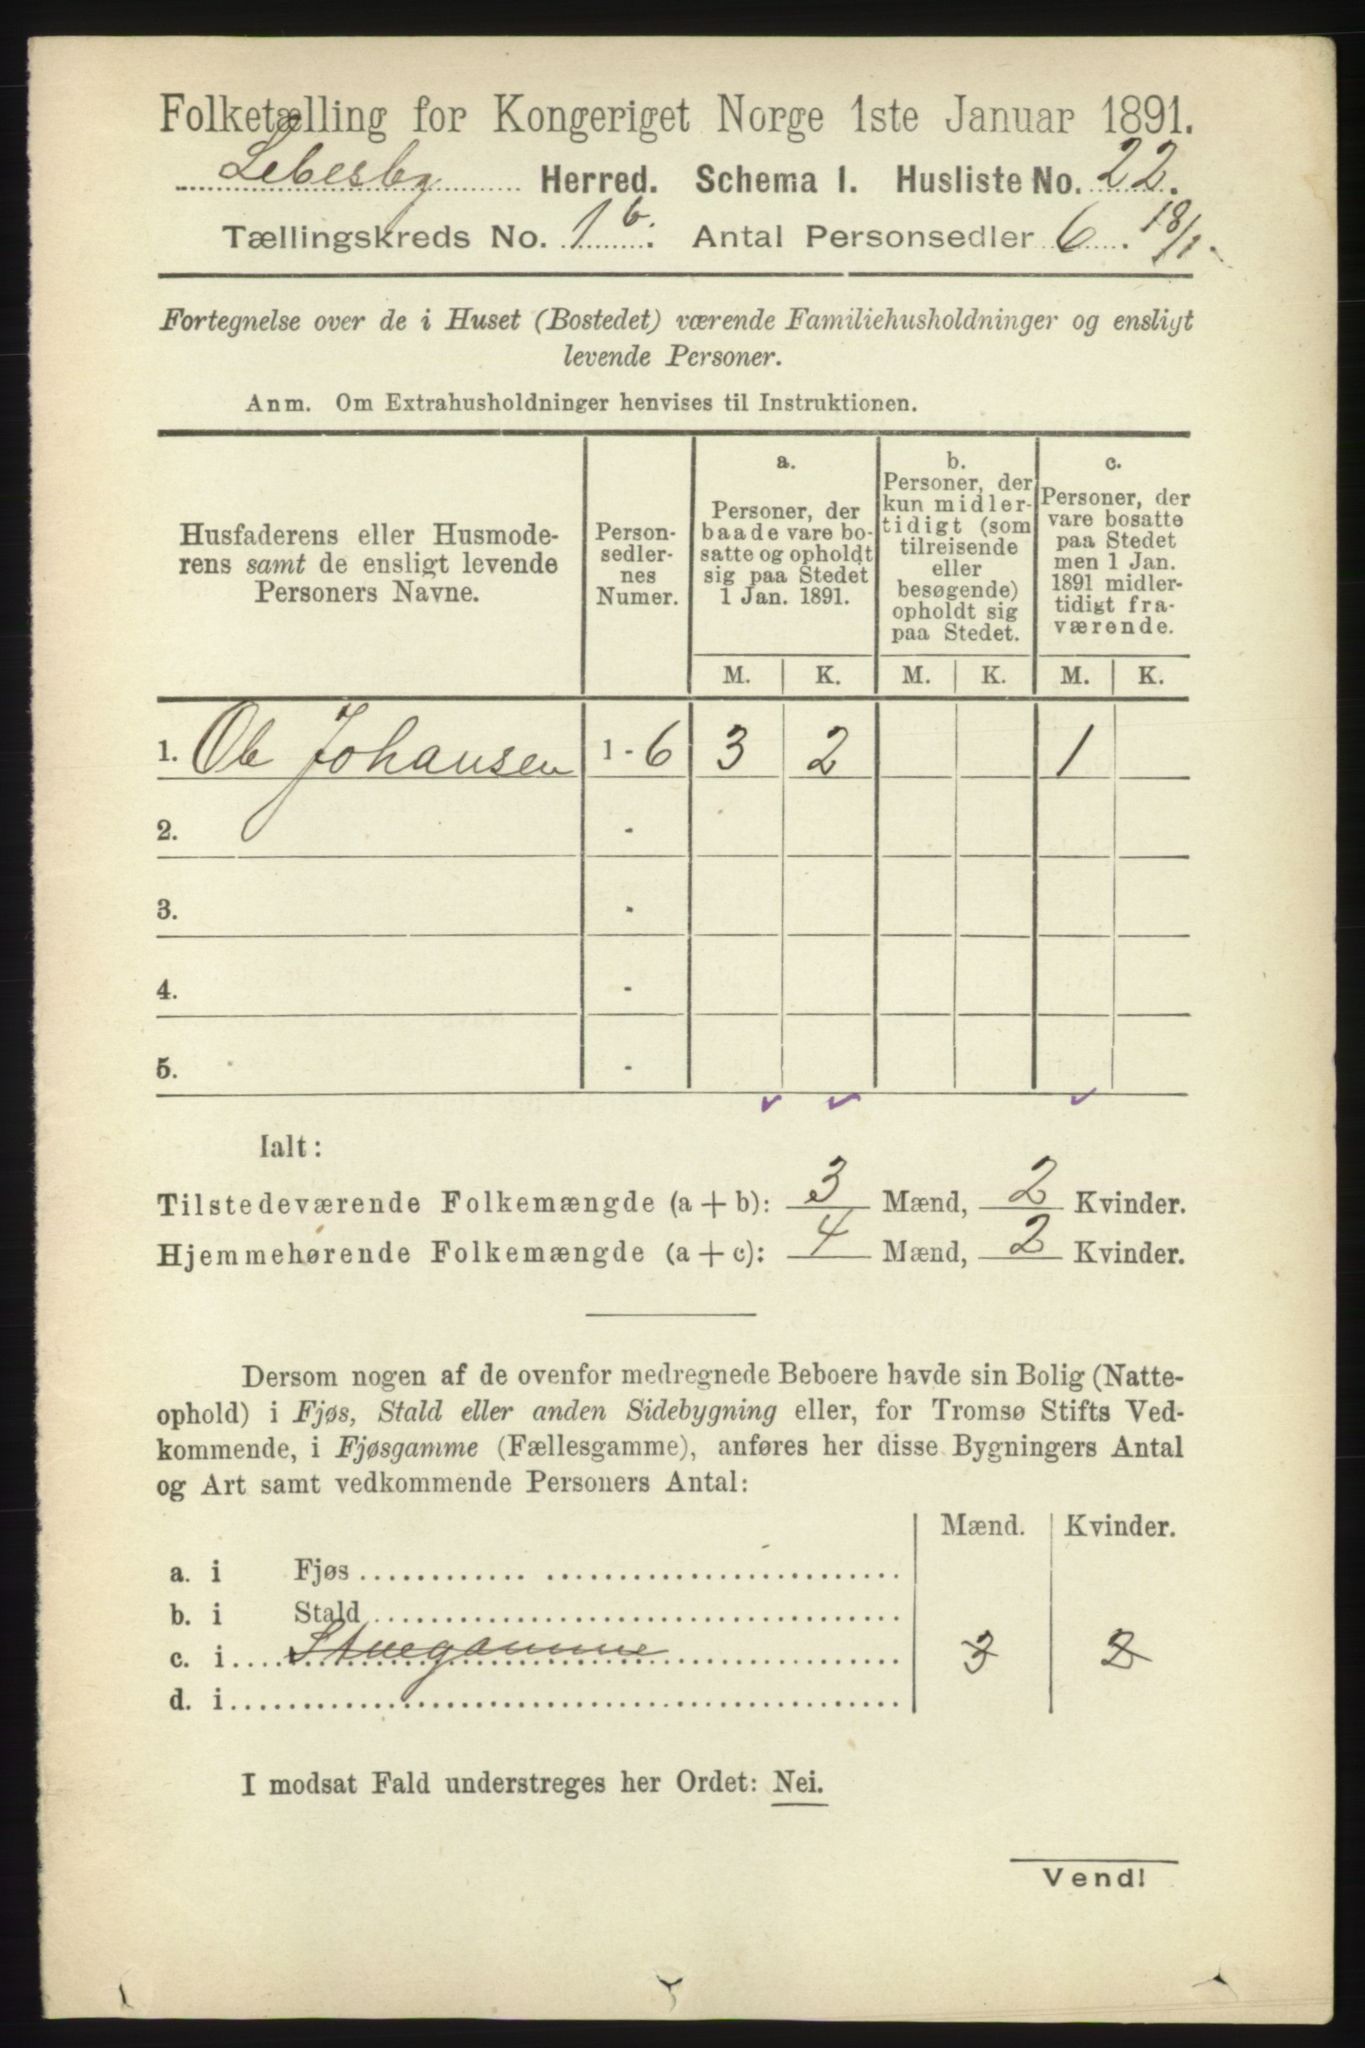 Folketælling for Kongeriget Norge 1ste Januar 1891.
Lebesby Herred. Schema 1. Husliste No. 22.
Tællingskreds No. 1 b. Antal Personsedler 6. 18/1.
Fortegnelse over de i Huset (Bostedet) værende Familiehusholdninger og ensligt
levende Personer.
Anm. Om Extrahusholdninger henvises til Instruktionen.
Husfaderens eller Husmode-
rens samt de ensligt levende
Personers Navne.
Person-
sedler-
nes
Numer.
a.
Personer, der
baade vare bo-
satte og opholdt
sig paa Stedet
1 Jan. 1891.
b.
Personer, der
kun midler-
tidigt (som
tilreisende
eller
besøgende)
opholdt sig
paa Stedet.
c.
Personer, der
vare bosatte
paa Stedet
men 1 Jan.
1891 midler-
tidigt fra-
værende.
M. K. M. K. M. K.
1. Ole Johansen 1 - 6 3 2 1
2. -
3. -
4. -
5. -
Ialt:
Tilstedeværende Folkemængde (a + b): 3 Mænd, 2 Kvinder.
Hjemmehørende Folkemængde (a + c): 4 Mænd, 2 Kvinder.
Dersom nogen af de ovenfor medregnede Beboere havde sin Bolig (Natte-
ophold) i Fjøs, Stald eller anden Sidebygning eller, for Tromsø Stifts Ved-
kommende, i Fjøsgamme (Fællesgamme), anføres her disse Bygningers Antal
og Art samt vedkommende Personers Antal:
Mænd. Kvinder.
a. i Fjøs
b. i Stald
c. i Stuegamme 3 2
d. i
I modsat Fald understreges her Ordet: Nei.
Vend!